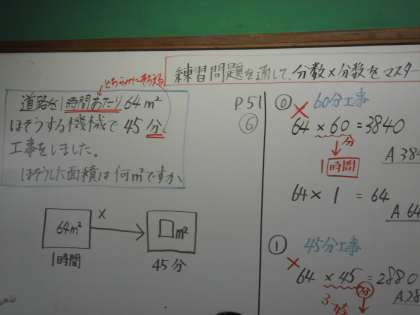 練習問題を通して、分数×分数をマスター
道路を1時間あたり64m²
ほそうする機械で45分
工事をしました。
ほそうした面積は何m²ですか。
64m²
×
□m²
1時間
45分
P51
⑥
⓪ 60分工事
×
64 × 60 = 3840
分
1時間
A 384
64 × 1 = 64
A 64
① 45分工事
×
64 × 45 = 2880
A 28